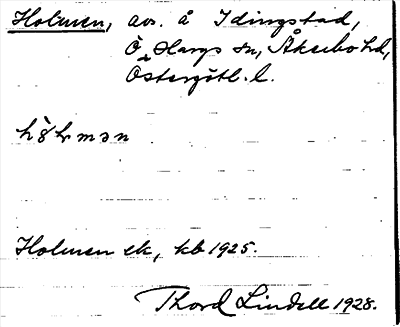 Holmen, avs. å Idingstad,
Ö. Hargs sn, Åkerbo hd,
Östergötl. l.
Holmen ek, kb 1925.
Thord Lindell 1928.